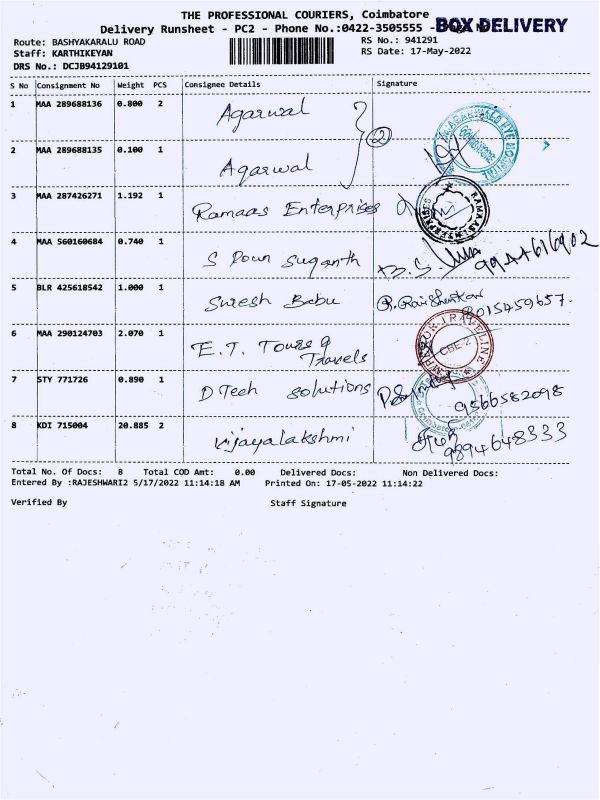 THE PROFESSIONAL COURIERS, Coimbatore
Delivery Runsheet - PC2 - Phone No.:0422-3505555 -
BOX DELIVERY
Route: BASHYAKARALU ROAD
RS No.: 941291
Staff: KARTHIKEYAN
RS Date: 17-May-2022
DRS No.: DCJB94129101
S No Consignment No Weight PCS Consignee Details Signature
1 MAA 289688136 0.800 2 Agarwal
2
2 MAA 289688135 0.100 1 Agarwal
3 MAA 287426271 1.192 1 Ramaas Enterprises
4 MAA 560160684 0.740 1 S Poun Suganth 9944616902
5 BLR 425618542 1.000 1 Suresh Babu R. Ravishankar
8015459657.
6 MAA 290124703 2.070 1 E.T. Tours &
Travels
CBE-2
7 STY 771726 0.890 1 DTech solutions
9566582098
8 KDI 715004 20.885 2 Vijayalakshmi
9894648333
Total No. Of Docs: 8 Total COD Amt: 0.00 Delivered Docs: Non Delivered Docs:
Entered By :RAJESHWARI2 5/17/2022 11:14:18 AM Printed On: 17-05-2022 11:14:22
Verified By Staff Signature